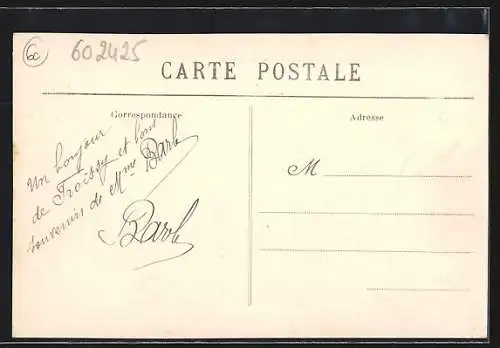 60 602425
CARTE POSTALE
Correspondance
Adresse
Un bonjour
de Froissy et bons
souvenirs de Mme Barb
Barb
M